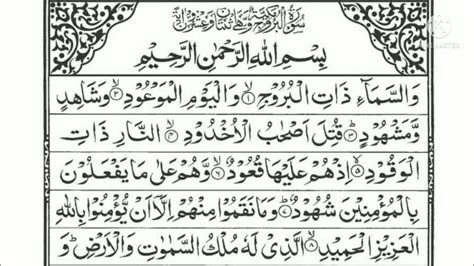 سُوْرَةُ الْبُرُوْجِ مَكِّيَّةٌ وَّهِيَ ثِنْتَانِ وَعِشْرُوْنَ اٰيَةً
بِسْمِ اللّٰهِ الرَّحْمٰنِ الرَّحِيْمِ
وَالسَّمَآءِ ذَاتِ الْبُرُوْجِ ۙ‏﴿۱﴾ وَالْيَوْمِ الْمَوْعُوْدِ ۙ‏﴿۲﴾ وَشَاهِدٍ
وَّمَشْهُوْدٍ ؕ‏﴿۳﴾ قُتِلَ اَصْحٰبُ الْاُخْدُوْدِ ۙ‏﴿۴﴾ النَّارِ ذَاتِ
الْوَقُوْدِ ۙ‏﴿۵﴾ اِذْ هُمْ عَلَيْهَا قُعُوْدٌ ۙ‏﴿۶﴾ وَّهُمْ عَلٰى مَا يَفْعَلُوْنَ
بِالْمُؤْمِنِيْنَ شُهُوْدٌ ؕ‏﴿۷﴾ وَمَا نَقَمُوْا مِنْهُمْ اِلَّاۤ اَنْ يُّؤْمِنُوْا بِاللّٰهِ
الْعَزِيْزِ الْحَمِيْدِ ۙ‏﴿۸﴾ الَّذِيْ لَهٗ مُلْكُ السَّمٰوٰتِ وَالْاَرْضِ ؕ وَ